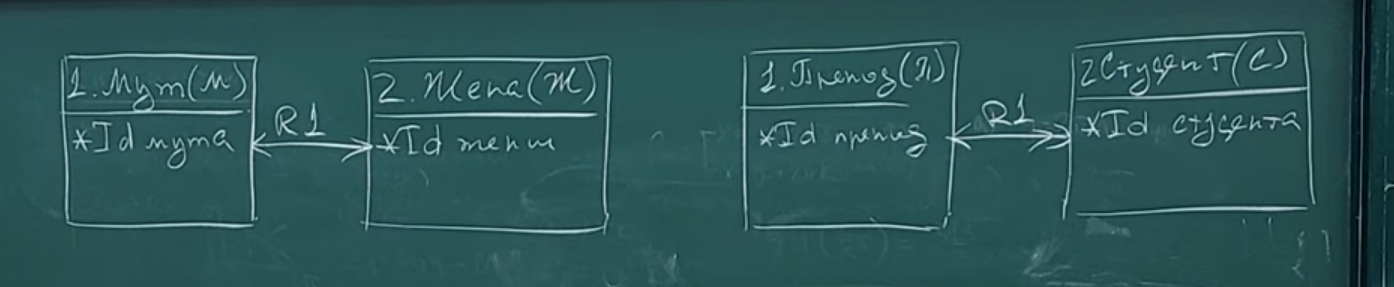 1. Муж(М)
*Id мужа
R1
2. Жена(Ж)
*Id жены
1. Препод(П)
*Id препод
R1
2 Студент(С)
*Id студента